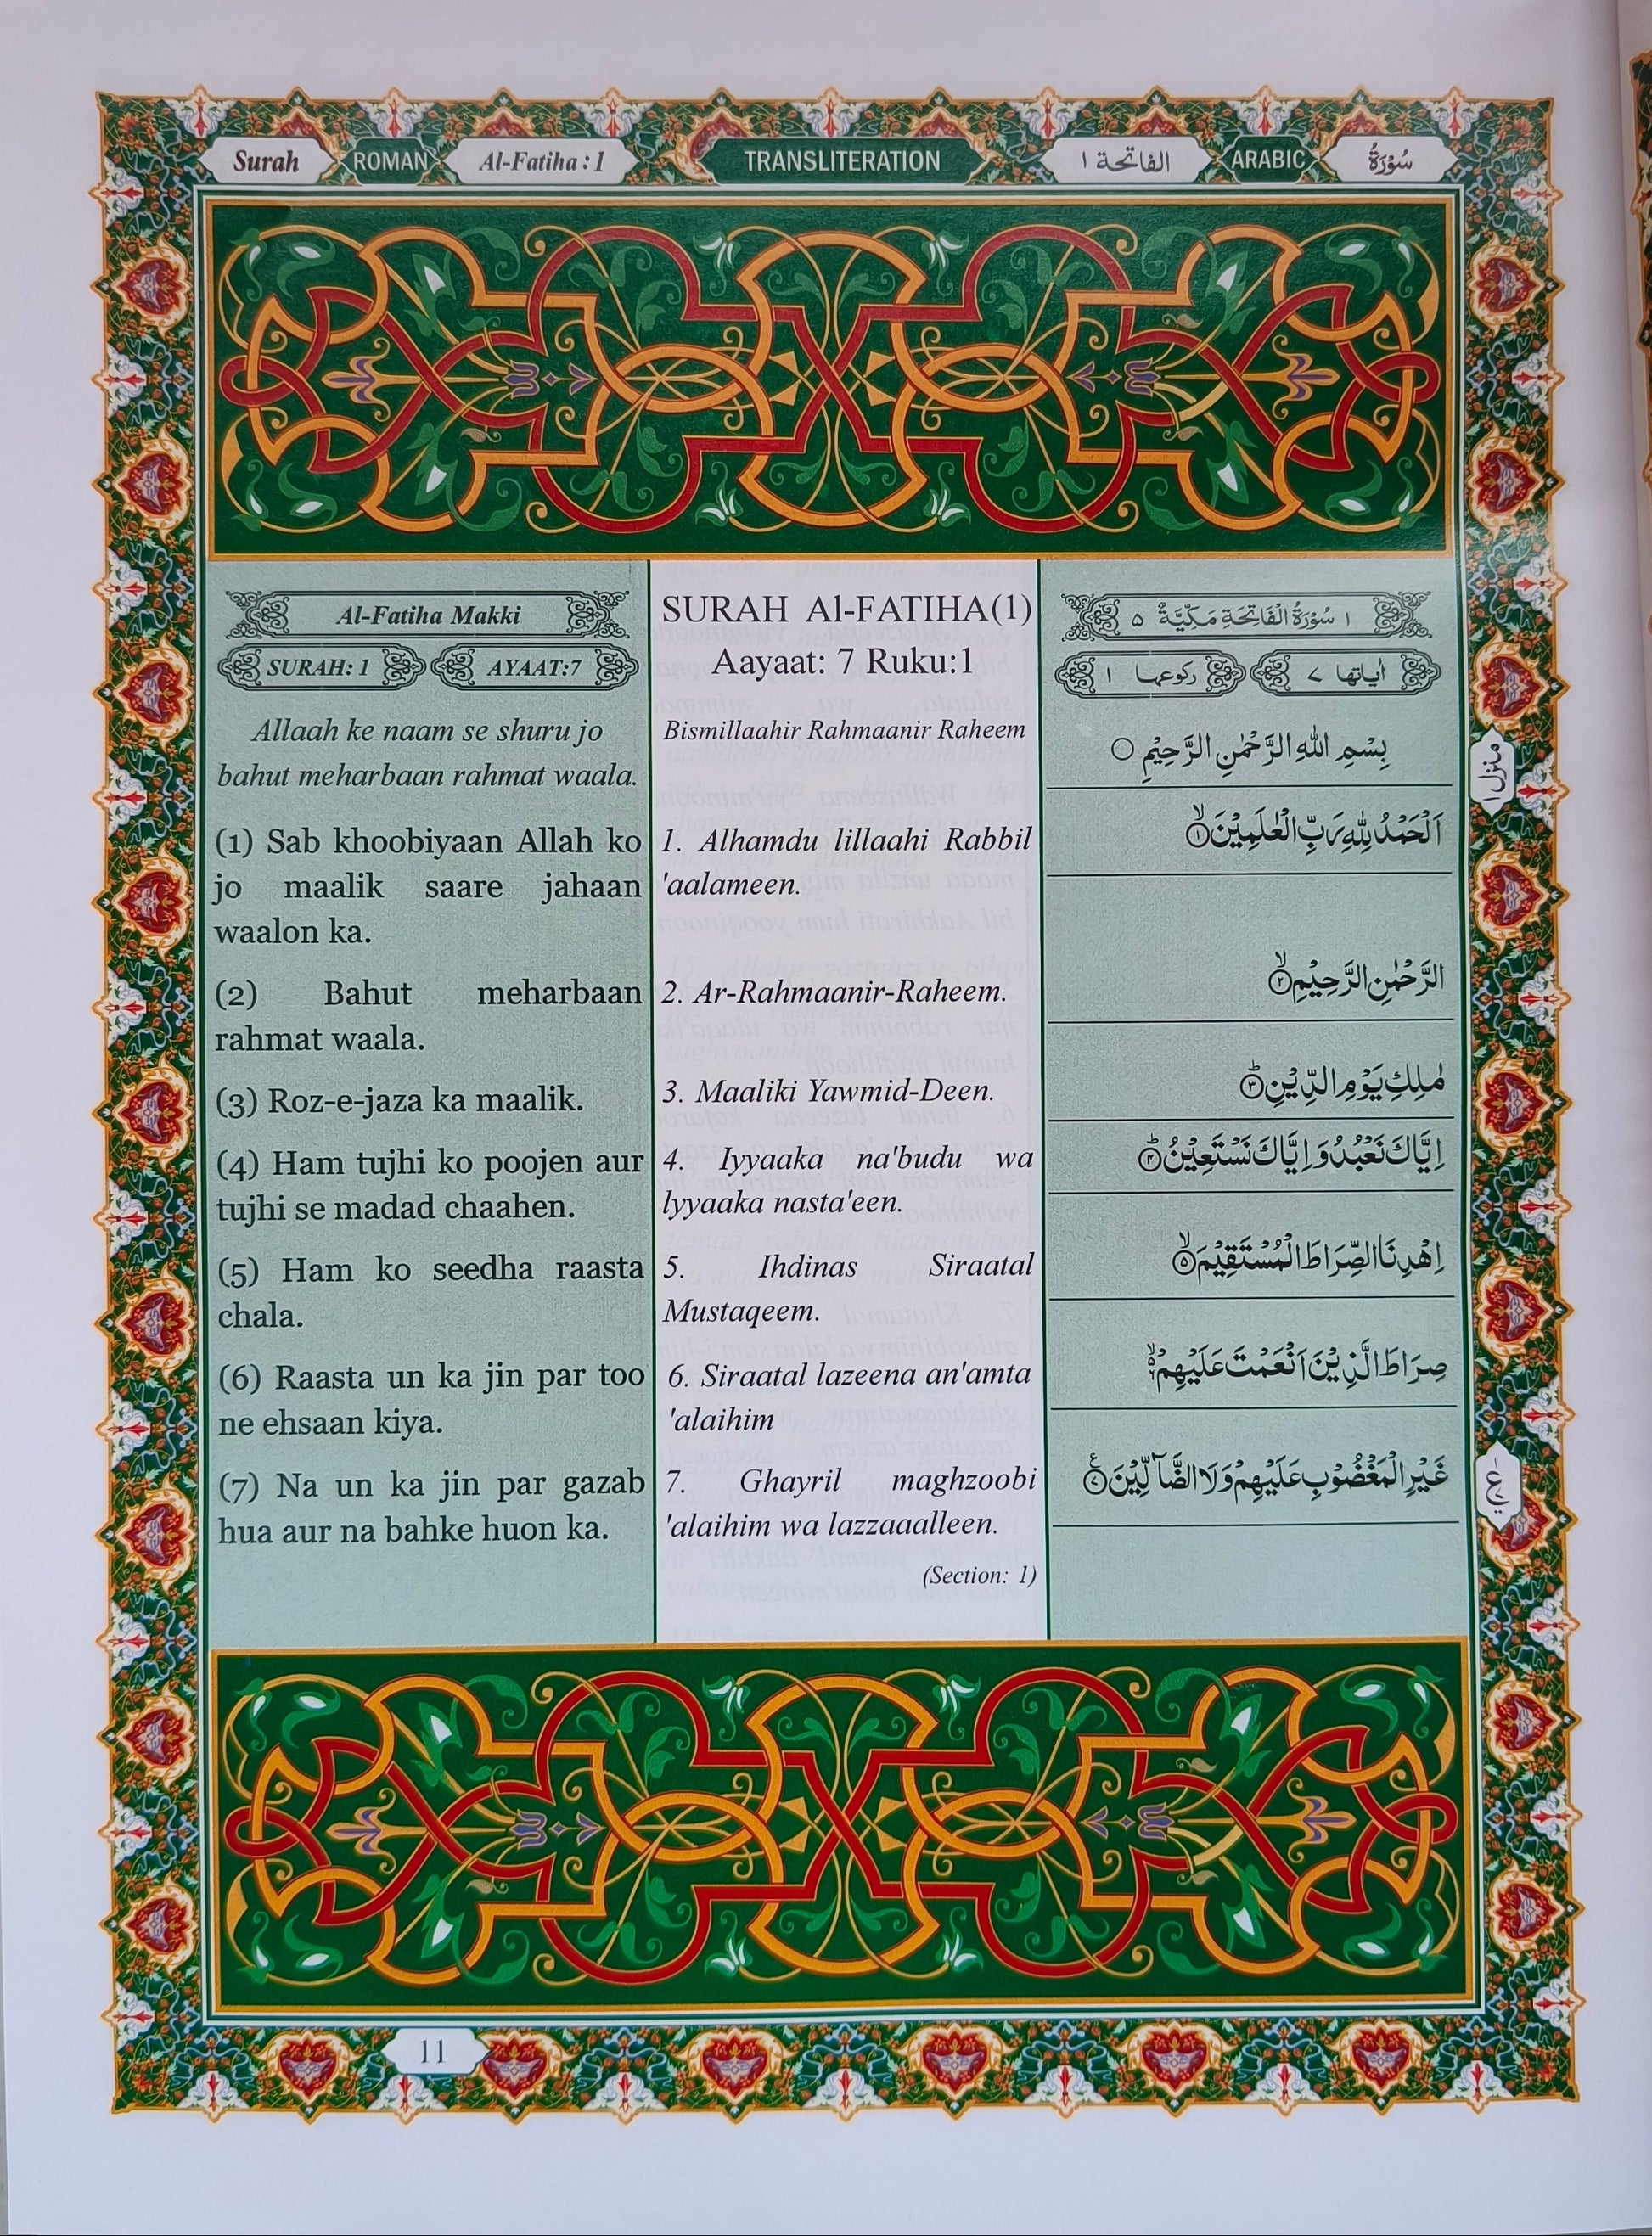 Surah ROMAN Al-Fatiha : 1 TRANSLITERATION الفاتحة ١ ARABIC سُوْرَةُ
Al-Fatiha Makki
SURAH: 1 AYAAT:7
Allaah ke naam se shuru jo
bahut meharbaan rahmat waala.
(1) Sab khoobiyaan Allah ko
jo maalik saare jahaan
waalon ka.
(2) Bahut meharbaan
rahmat waala.
(3) Roz-e-jaza ka maalik.
(4) Ham tujhi ko poojen aur
tujhi se madad chaahen.
(5) Ham ko seedha raasta
chala.
(6) Raasta un ka jin par too
ne ehsaan kiya.
(7) Na un ka jin par gazab
hua aur na bahke huon ka.
SURAH Al-FATIHA(1)
Aayaat: 7 Ruku:1
Bismillaahir Rahmaanir Raheem
1. Alhamdu lillaahi Rabbil
'aalameen.
2. Ar-Rahmaanir-Raheem.
3. Maaliki Yawmid-Deen.
4. Iyyaaka na'budu wa
lyyaaka nasta'een.
5. Ihdinas Siraatal
Mustaqeem.
6. Siraatal lazeena an'amta
'alaihim
7. Ghayril maghzoobi
'alaihim wa lazzaaalleen.
(Section: 1)
١ سُوْرَةُ الْفَاتِحَةِ مَكِّيَّةٌ ٥
أياتها ٧ ركوعها ١
بِسْمِ اللّٰهِ الرَّحْمٰنِ الرَّحِيْمِ ○
اَلْحَمْدُ لِلّٰهِ رَبِّ الْعٰلَمِيْنَ ۙ﴿۱﴾
الرَّحْمٰنِ الرَّحِيْمِ ۙ﴿۲﴾
مٰلِكِ يَوْمِ الدِّيْنِ ؕ﴿۳﴾
اِيَّاكَ نَعْبُدُ وَ اِيَّاكَ نَسْتَعِيْنُ ؕ﴿۴﴾
اِهْدِنَا الصِّرَاطَ الْمُسْتَقِيْمَ ۙ﴿۵﴾
صِرَاطَ الَّذِيْنَ اَنْعَمْتَ عَلَيْهِمْ ۙ۬ۦ
غَيْرِ الْمَغْضُوْبِ عَلَيْهِمْ وَ لَا الضَّآلِّيْنَ ﴿۷﴾
منزل ١
ع
11